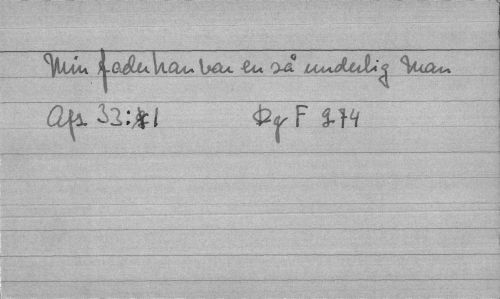 Min fader han var en så underlig man
Afz 33:1 Dg F 274